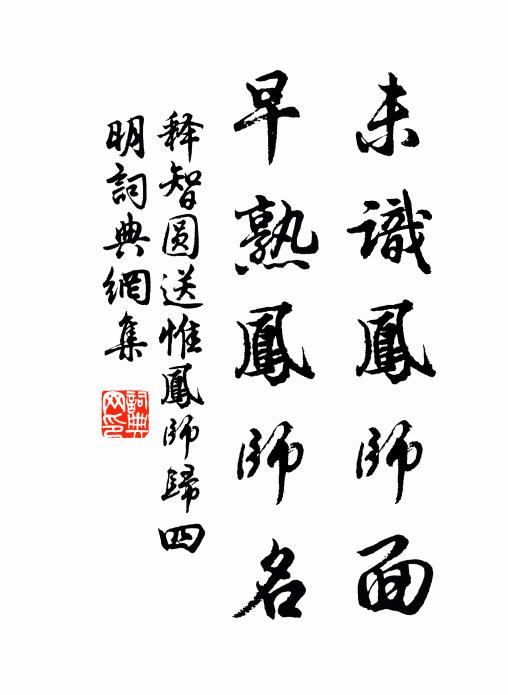 未識鳳師面
早熟鳳師名
释智圆送惟鳳師歸四
明詞典網集
詞典
网印